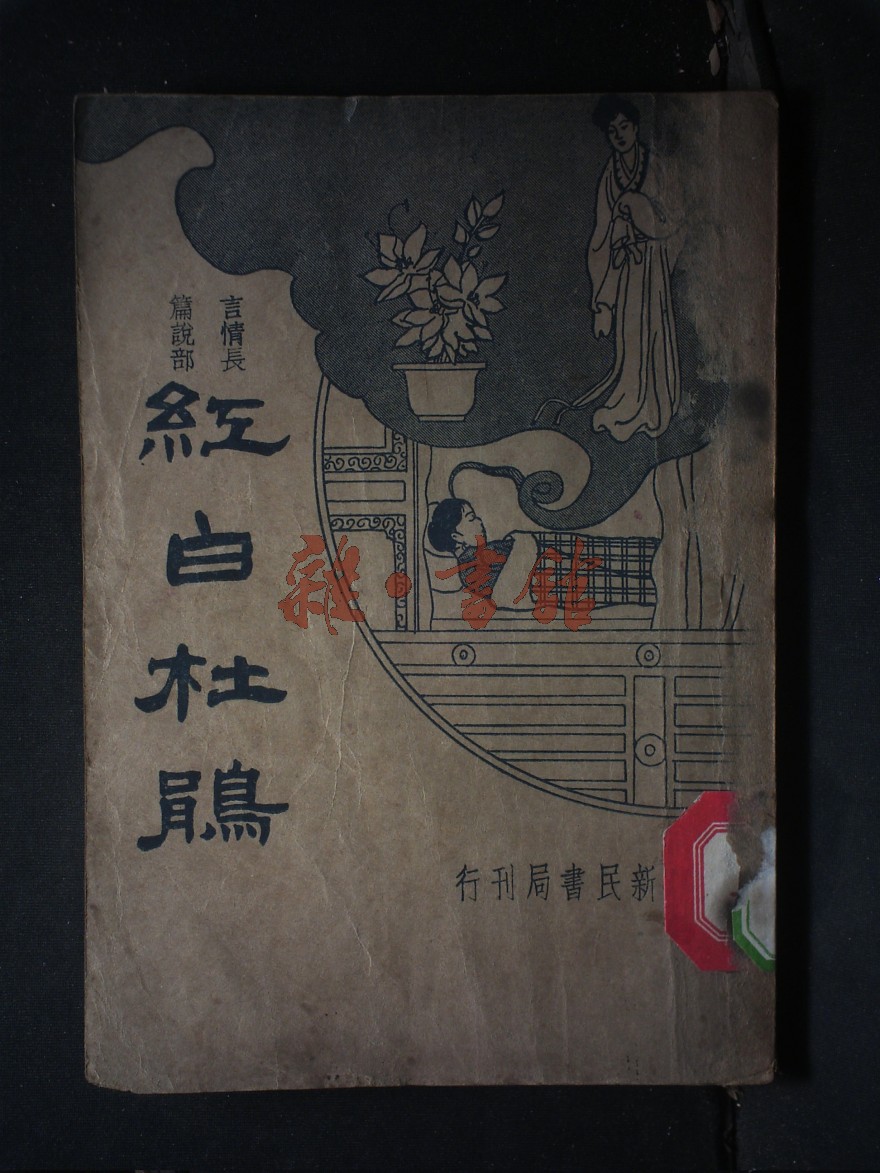 言情長
篇說部
紅白杜鵑
新民書局刊行
雜·書館